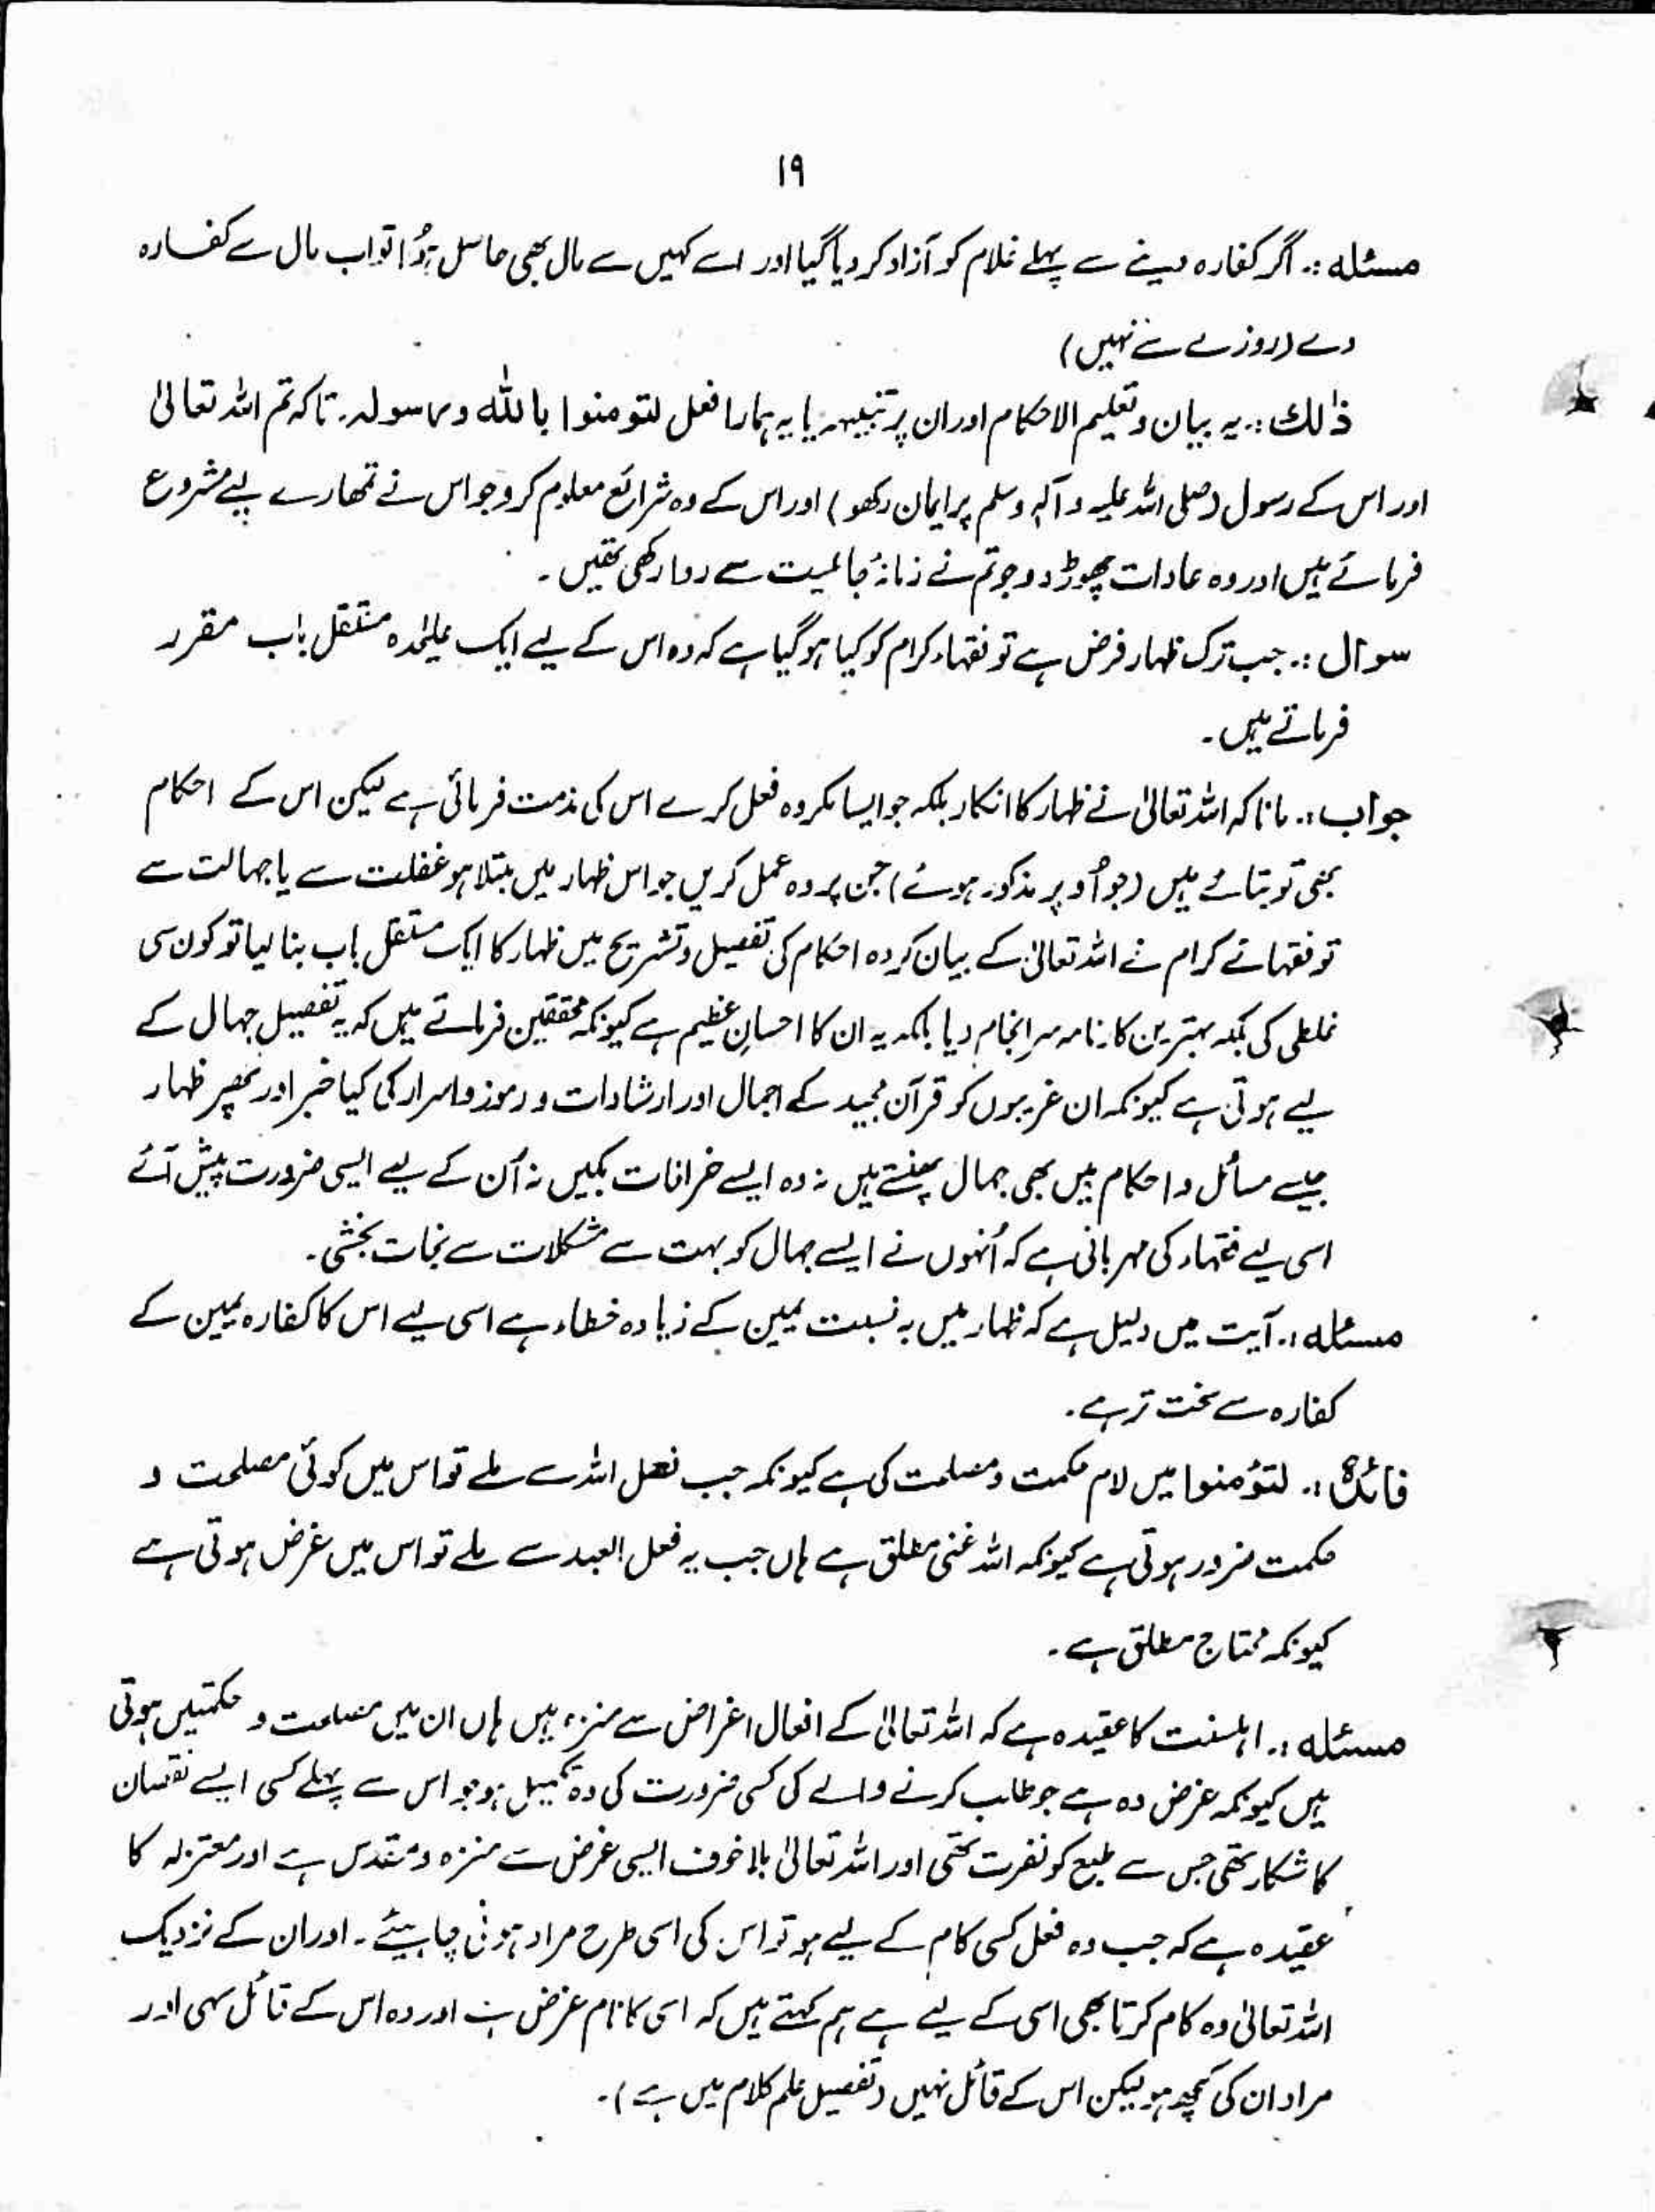 ۱۹
مسئلہ :۔ اگر کفارہ دینے سے پہلے غلام کو آزاد کر دیا گیا اور اسے کہیں سے مال بھی حاصل ہوُا تو اب مال سے کفارہ
دے (روزے سے نہیں)
ذٰلك :۔ یہ بیان و تعلیم الاحکام اور ان پر تنبیہہ یا یہ ہمارا فعل لتومنوا باللّٰه ورسوله۔ تاکہ تم اللہ تعالیٰ
اور اس کے رسول (صلی اللہ علیہ وآلہ وسلم پر ایمان رکھو) اور اس کے وہ شرائع معلوم کرو جو اس نے تمھارے لیے مشروع
فرمائے ہیں اور وہ عادات چھوڑ دو جو تم نے زمانۂ جاہلیت سے روا رکھی تھیں ۔
سوال :۔ جب ترک ظہار فرض ہے تو فقہاء کرام کو کیا ہو گیا ہے کہ وہ اس کے لیے ایک علیٰحدہ مستقل باب مقرر
فرماتے ہیں ۔
جواب :۔ مانا کہ اللہ تعالیٰ نے ظہار کا انکار بلکہ جو ایسا مکروہ فعل کرے اس کی مذمت فرمائی ہے لیکن اس کے احکام
بھی تو بتائے ہیں (جو اُوپر مذکور ہوئے) جن پر وہ عمل کریں جو اس ظہار میں مبتلا ہو غفلت سے یا جہالت سے
تو فقہائے کرام نے اللہ تعالیٰ کے بیان کردہ احکام کی تفصیل و تشریح میں ظہار کا ایک مستقل باب بنا لیا تو کون سی
غلطی کی بلکہ بہترین کارنامہ سرانجام دیا بلکہ یہ ان کا احسانِ عظیم ہے کیونکہ محققین فرماتے ہیں کہ یہ تفصیل جہال کے
لیے ہوتی ہے کیونکہ ان غریبوں کو قرآن مجید کے اجمال اور ارشادات و رموز واسرار کی کیا خبر اور پھر ظہار
جیسے مسائل و احکام میں بھی جہال پھنستے ہیں نہ وہ ایسے خرافات بکیں نہ اُن کے لیے ایسی ضرورت پیش آئے
اسی لیے فقہاء کی مہربانی ہے کہ اُنہوں نے ایسے جہال کو بہت سے مشکلات سے نجات بخشی ۔
مسئلہ :۔ آیت میں دلیل ہے کہ ظہار میں بہ نسبت یمین کے زیادہ خطاء ہے اسی لیے اس کا کفارہ یمین کے
کفارہ سے سخت تر ہے ۔
فائدہ :۔ لتؤمنوا میں لام حکمت و مصلحت کی ہے کیونکہ جب فعل اللہ سے ملے تو اس میں کوئی مصلحت و
حکمت ضرور ہوتی ہے کیونکہ اللہ غنی مطلق ہے ہاں جب یہ فعل العبد سے ملے تو اس میں غرض ہوتی ہے
کیونکہ محتاج مطلق ہے ۔
مسئلہ :۔ اہلسنت کا عقیدہ ہے کہ اللہ تعالیٰ کے افعال اغراض سے منزہ ہیں ہاں ان میں مصلحت و حکمتیں ہوتی
ہیں کیونکہ غرض وہ ہے جو طلب کرنے والے کی کسی ضرورت کی وہ تکمیل ہو جو اس سے پہلے کسی ایسے نقصان
کا شکار تھی جس سے طبع کو نفرت تھی اور اللہ تعالیٰ بلاخوف ایسی غرض سے منزہ و مقدس ہے اور معتزلہ کا
عقیدہ ہے کہ جب وہ فعل کسی کام کے لیے ہو تو اس کی اسی طرح مراد ہونی چاہیئے ۔ اور ان کے نزدیک
اللہ تعالیٰ وہ کام کرتا بھی اسی کے لیے ہے ہم کہتے ہیں کہ اسی کا نام غرض ہے اور وہ اس کے قائل سہی اور
مراد ان کی کچھ ہو لیکن اس کے قائل نہیں (تفصیل علم کلام میں ہے) ۔